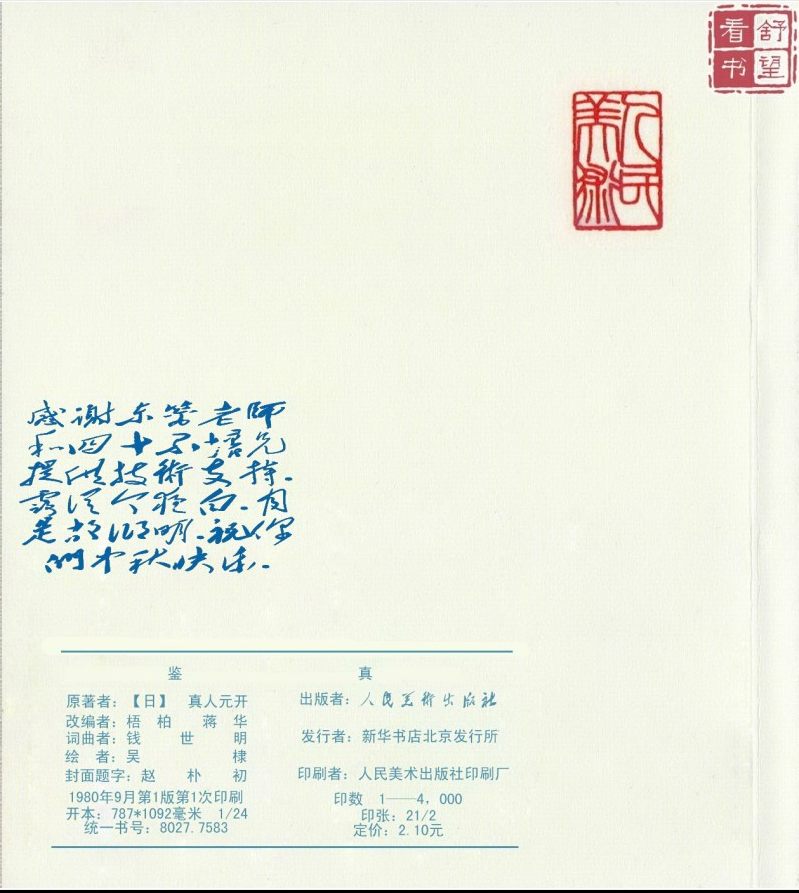 舒望
看书
人民
美术
感谢东篱老师
和四十不悟兄
提供技術支持.
露從今夜白.月
是故鄉明.祝你
們中秋快乐.
鉴 真
原著者：【日】 真人元开
改编者：梧 柏 蒋 华
词曲者：钱 世 明
绘 者：吴 棣
封面题字：赵 朴 初
1980年9月第1版第1次印刷
开本：787*1092毫米 1/24
统一书号：8027.7583
出版者：人民美術出版社
发行者：新华书店北京发行所
印刷者：人民美术出版社印刷厂
印数 1——4，000
印张：21/2
定价：2.10元